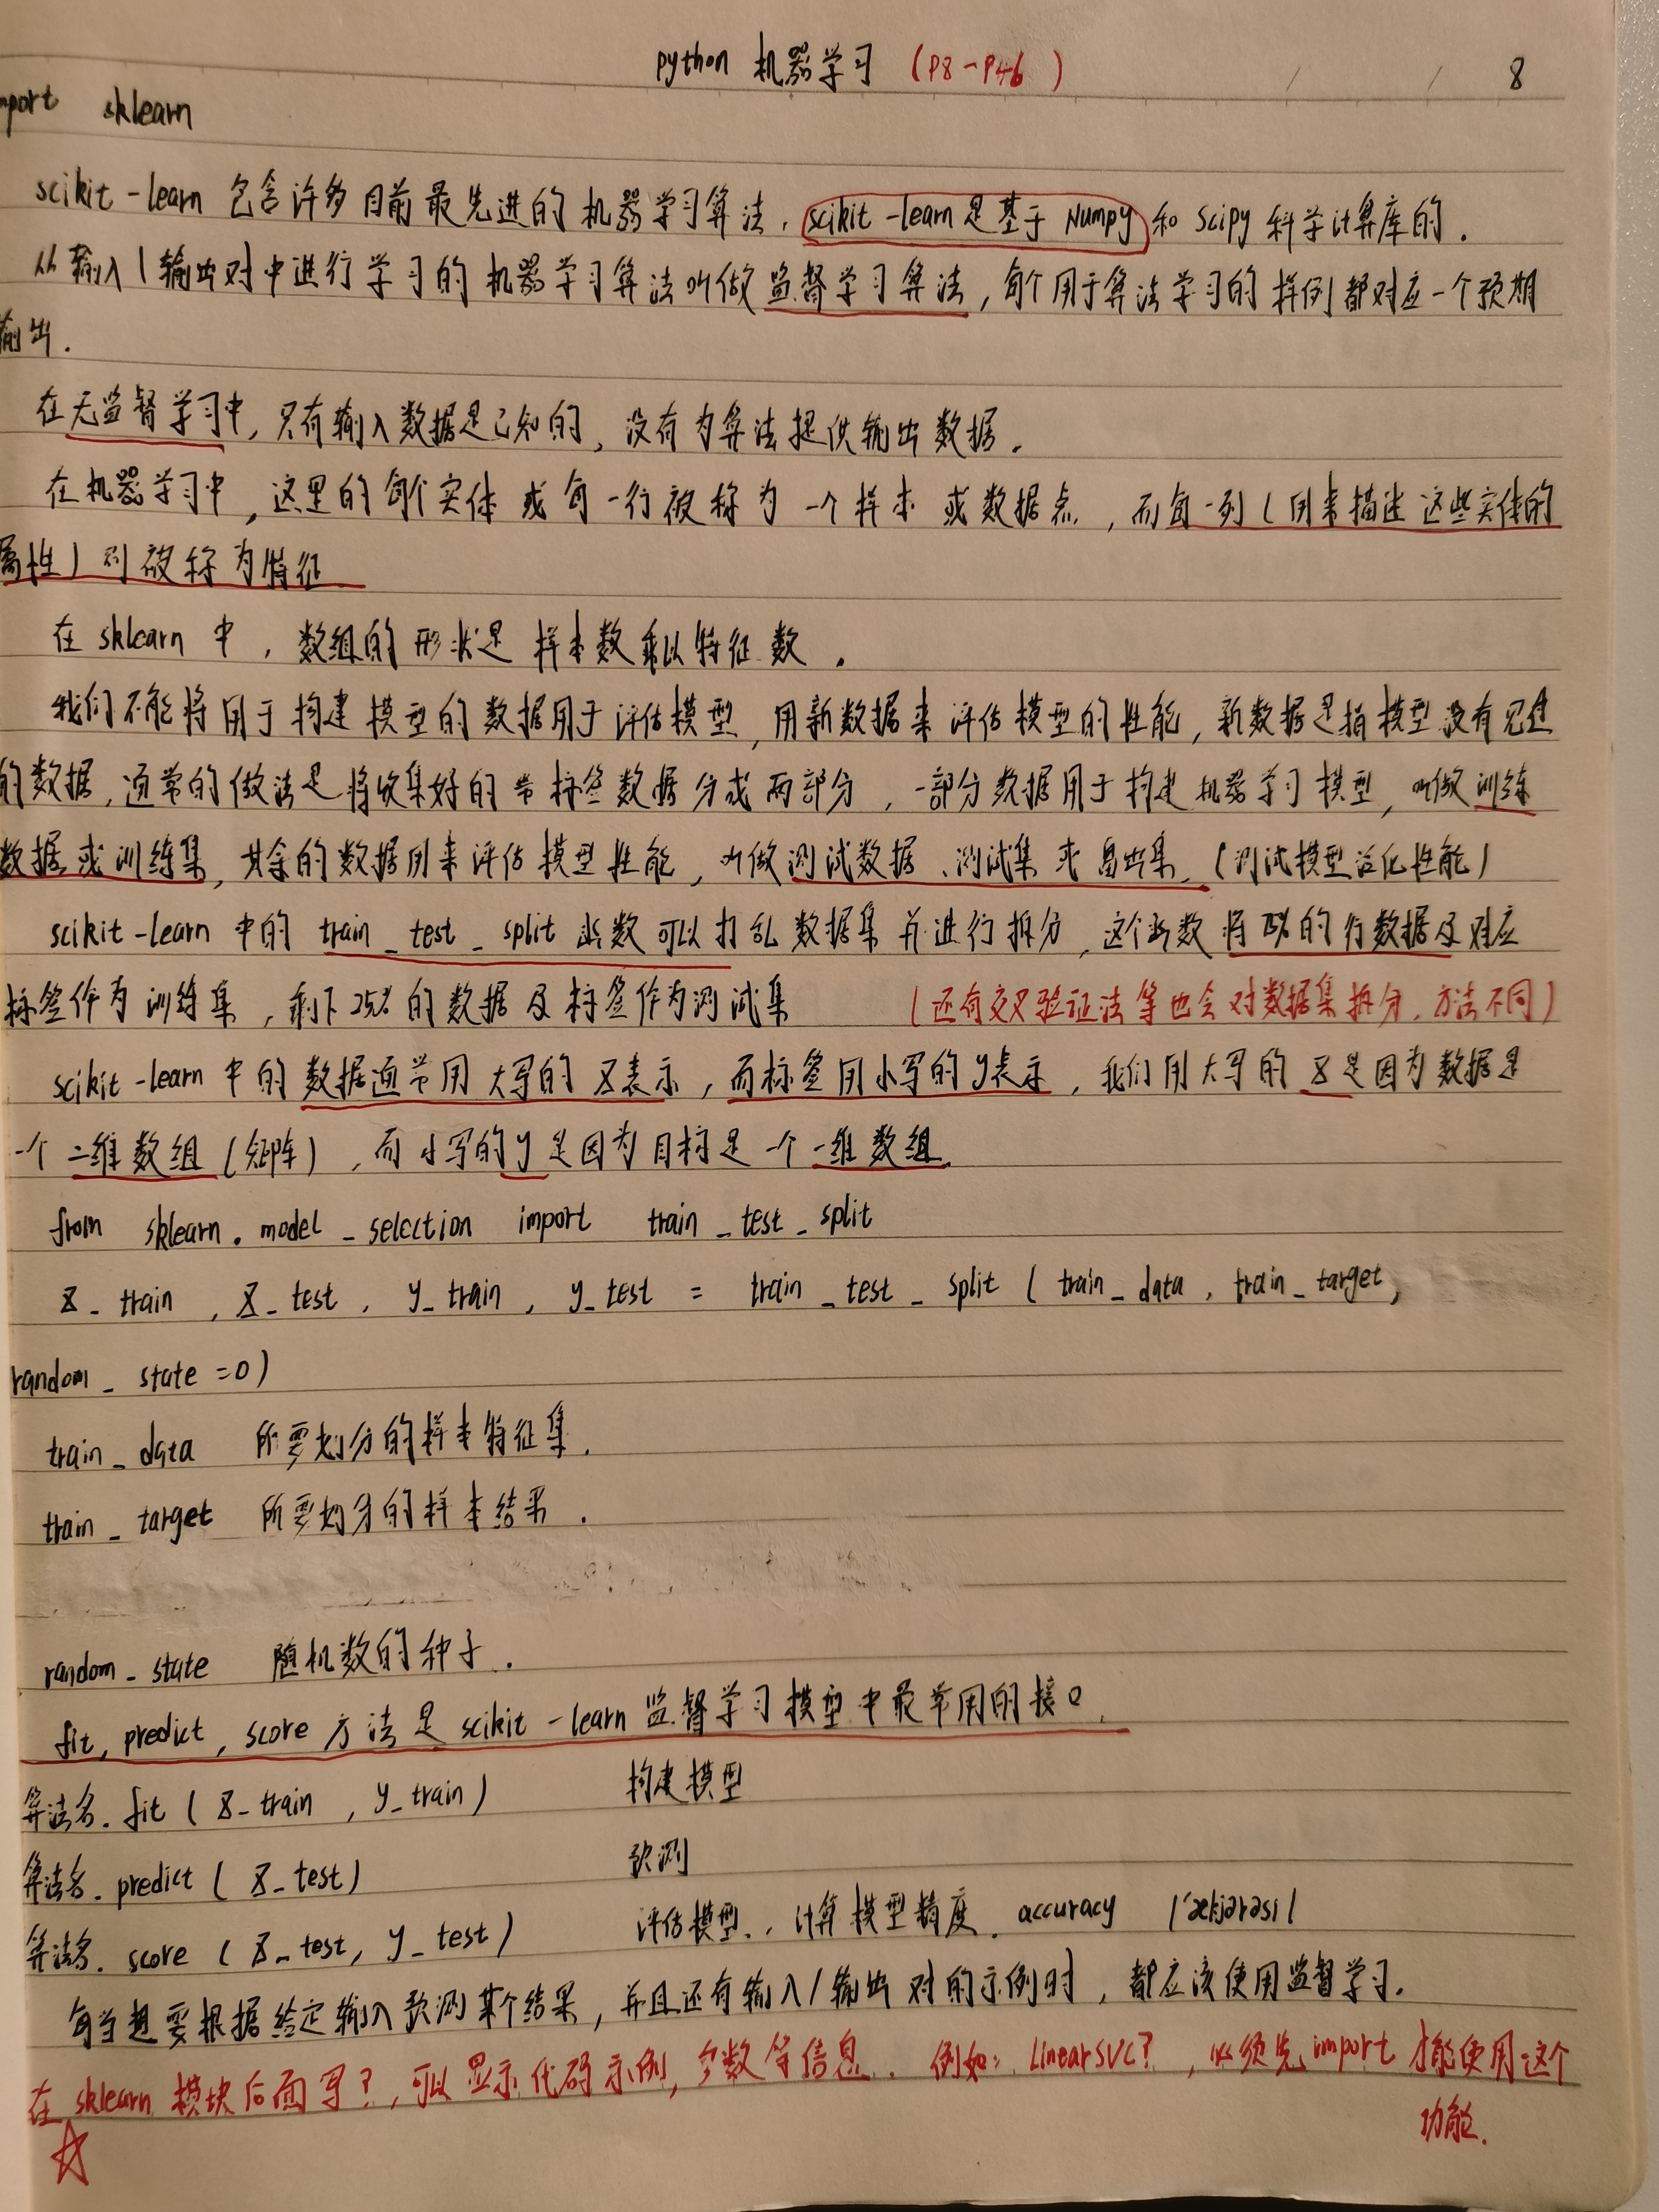 python 机器学习 (P8-P46) 8
mport sklearn
scikit-learn 包含许多目前最先进的机器学习算法. scikit-learn是基于Numpy和Scipy科学计算库的.
从输入/输出对中进行学习的机器学习算法叫做监督学习算法, 每个用于算法学习的样例都对应一个预期
输出.
在无监督学习中, 只有输入数据是已知的, 没有为算法提供输出数据.
在机器学习中, 这里的每个实体或每一行被称为一个样本或数据点, 而每一列(用来描述这些实体的
属性)则被称为特征
在sklearn中, 数组的形状是样本数乘以特征数.
我们不能将用于构建模型的数据用于评估模型, 用新数据来评估模型的性能, 新数据是指模型没有见过
的数据, 通常的做法是将收集好的带标签数据分成两部分, 一部分数据用于构建机器学习模型, 叫做训练
数据或训练集, 其余的数据用来评估模型性能, 叫做测试数据、测试集或留出集. (测试模型泛化性能)
scikit-learn中的train_test_split函数可以打乱数据集并进行拆分, 这个函数将75%的行数据及对应
标签作为训练集, 剩下25%的数据及标签作为测试集 (还有交叉验证法等也会对数据集拆分, 方法不同)
scikit-learn中的数据通常用大写的X表示, 而标签用小写的y表示, 我们用大写的X是因为数据是
一个二维数组(矩阵), 而小写的y是因为目标是一个一维数组.
from sklearn.model_selection import train_test_split
X_train, X_test, y_train, y_test = train_test_split(train_data, train_target,
random_state=0)
train_data 所要划分的样本特征集.
train_target 所要划分的样本结果.
random_state 随机数的种子.
fit, predict, score方法是scikit-learn监督学习模型中最常用的接口.
算法名.fit(X_train, y_train) 构建模型
算法名.predict(X_test) 预测
算法名.score(X_test, y_test) 评估模型., 计算模型精度. accuracy /ˈækjərəsi/
每当想要根据给定输入预测某个结果, 并且还有输入/输出对的示例时, 都应该使用监督学习.
在sklearn模块后面写?, 可以显示代码示例, 参数等信息. 例如: LinearSVC?, 必须先import才能使用这个
功能.